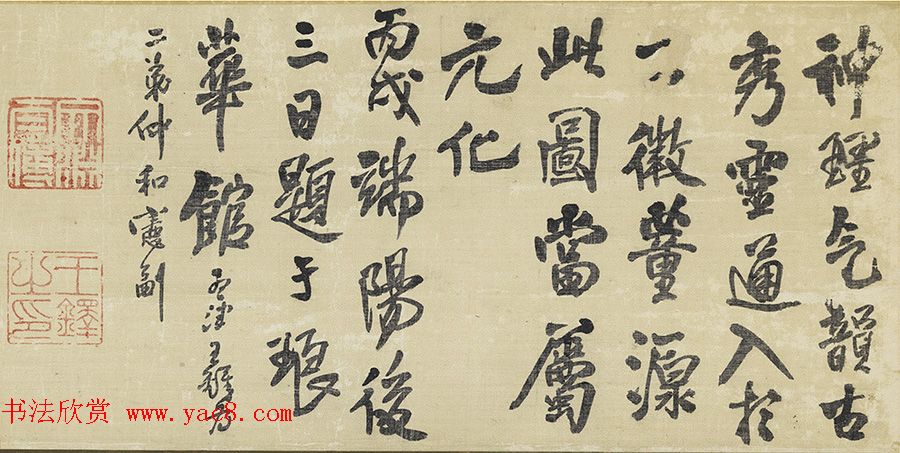 神理气韻古
秀靈通入於
微董源
此圖當屬
元化
丙戌端陽後
三日題于琅
華館 孟津王鐸為
二弟仲和憲副
王鐸之印
书法欣赏 www.yac8.com